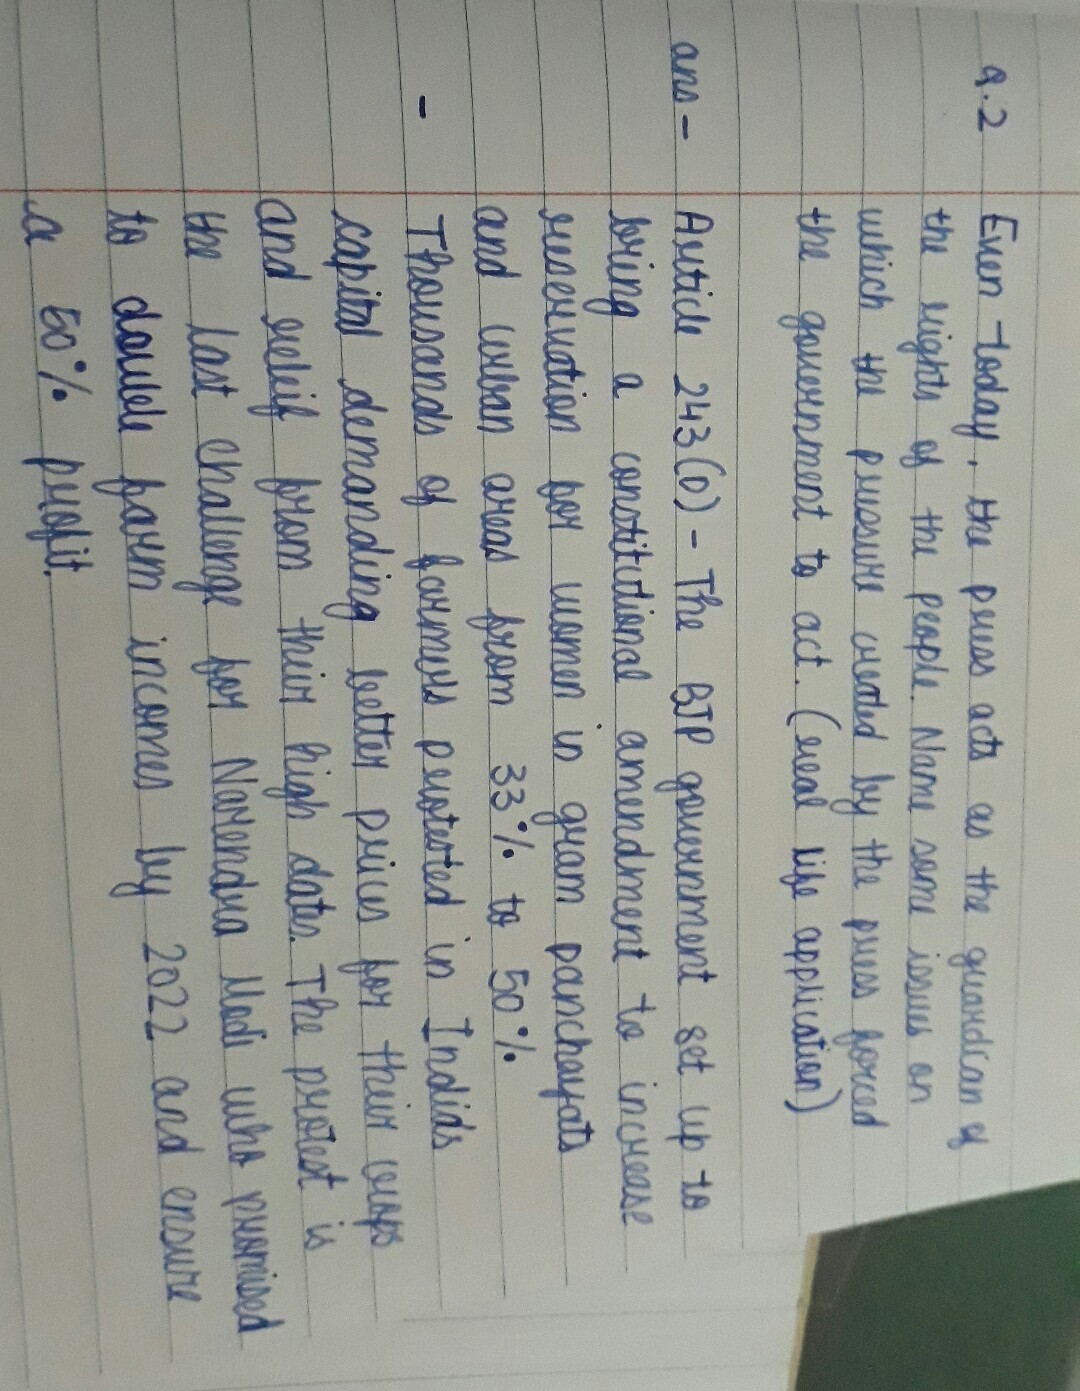 q.2 Even today, the press acts as the guardian of
the rights of the people. Name some issues on
which the pressure created by the press forced
the government to act. (real life application)
ans - Article 243(D) - The BJP government set up to
bring a constitutional amendment to increase
reservation for women in gram panchayats
and urban areas from 33% to 50%
- Thousands of farmers protested in Indids
capital demanding better prices for their crops
and releif from their high dates. The protest is
the last challenge for Narendra Modi who promised
to double farm incomes by 2022 and ensure
a 50% profit.